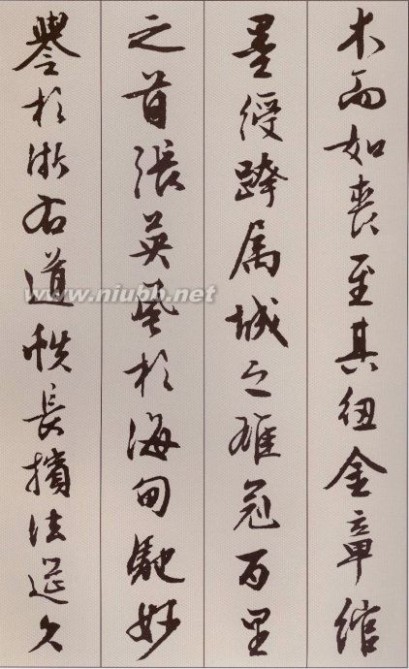 木而如喪至其紐金章綰
墨綬跨属城之雄冠百里
之首張英風於海甸馳妙
譽於浙右道帙長擯法筵久
www.niubb.net